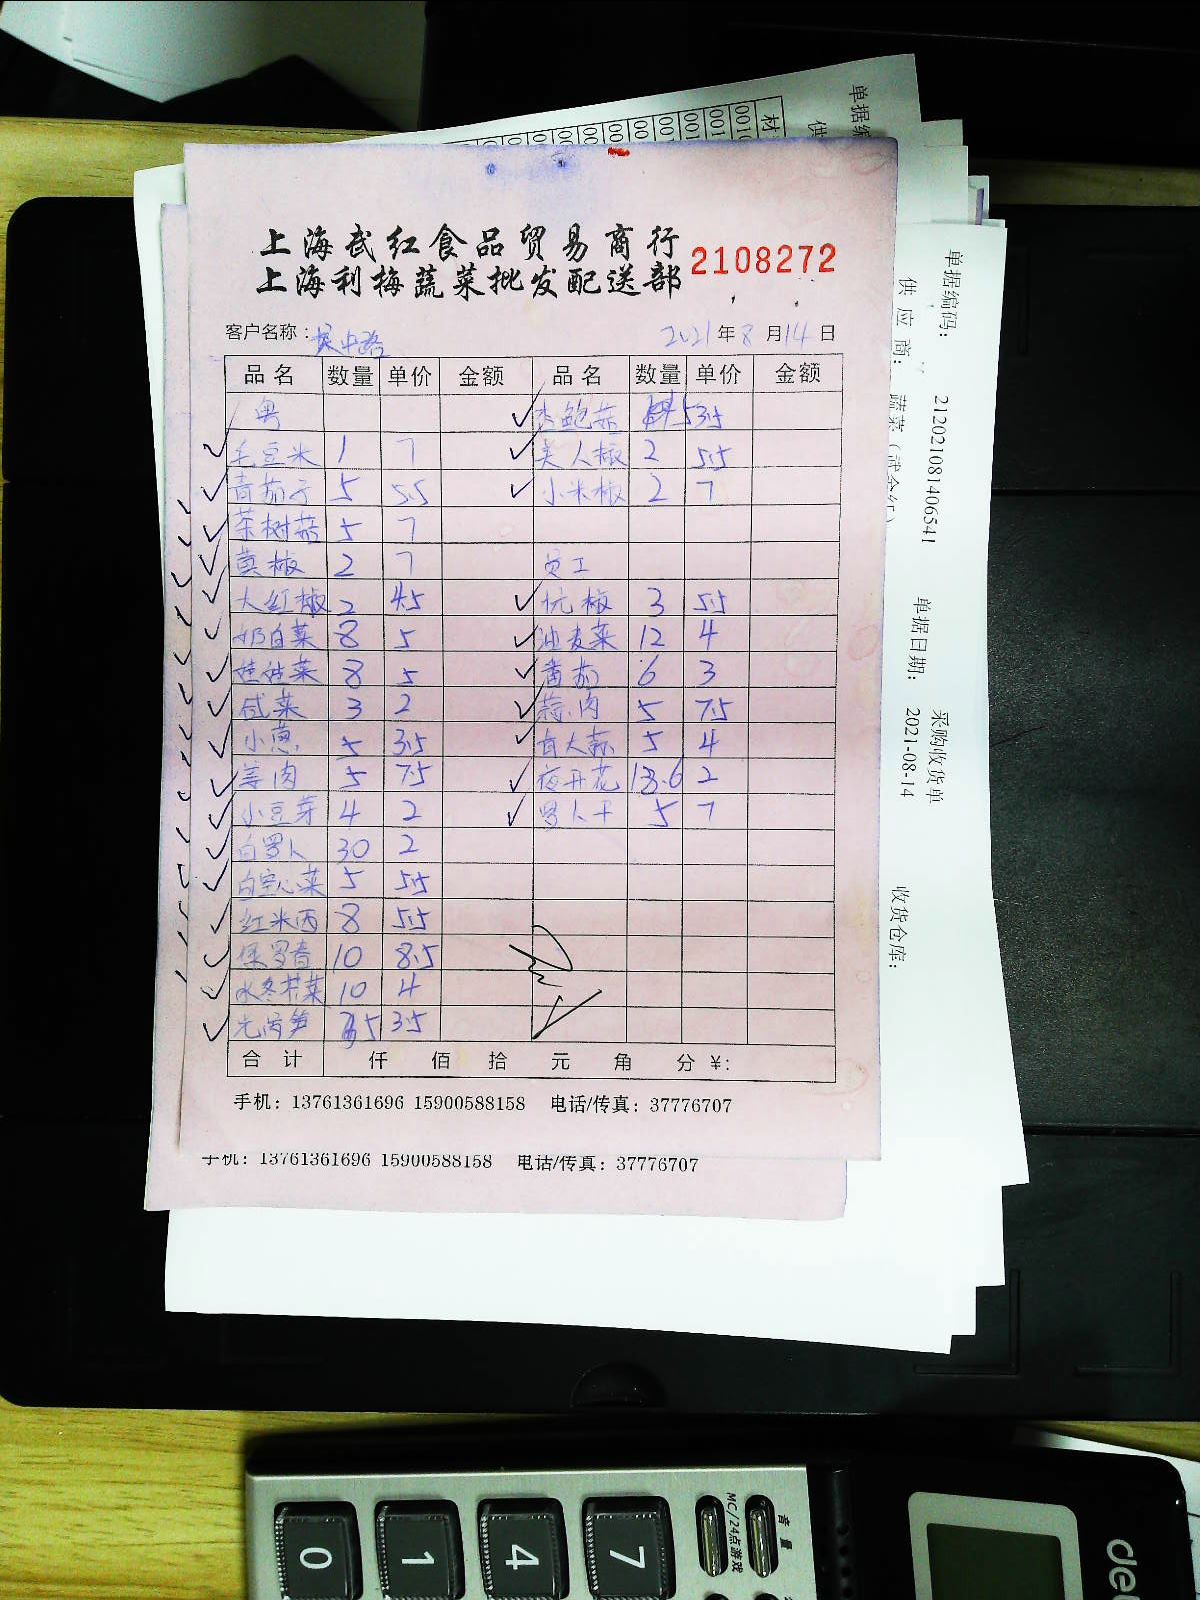 上海武红食品贸易商行
上海利梅蔬菜批发配送部
2108272
客户名称: 吴中路 2021年8月14日
品名 数量 单价 金额 品名 数量 单价 金额
粤 杏鲍菇 5 3.5
毛豆米 1 7 美人椒 2 5.5
青茄子 5 5.5 小米椒 2 7
茶树菇 5 7
黄椒 2 7 员工
大红椒 2 4.5 杭椒 3 5.5
奶白菜 8 5 油麦菜 12 4
娃娃菜 8 5 番茄 6 3
咸菜 3 2 蒜肉 5 7.5
小葱 5 3.5 白大蒜 5 4
姜肉 5 7.5 夜开花 13.6 2
小豆芽 4 2 罗卜干 5 7
白罗卜 30 2
白空心菜 5 5.5
红米西 8 5.5
保罗春 10 8.5
水冬芹菜 10 4
光莴笋 5 3.5
合计 仟 佰 拾 元 角 分 ¥:
手机: 13761361696 15900588158 电话/传真: 37776707
手机: 13761361696 15900588158 电话/传真: 37776707
单据编码: 212021081406541 采购收货单
供应商: 蔬菜 单据日期: 2021-08-14 收货仓库:
单据编
供
材
音量
MC/24点游戏
0 1 4 7
de